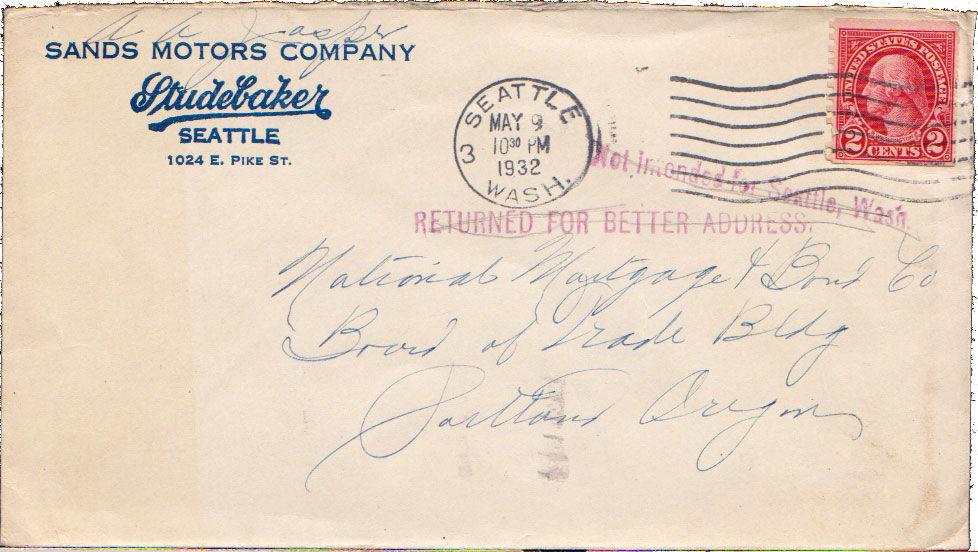 A A Jasper
SANDS MOTORS COMPANY
Studebaker
SEATTLE
1024 E. PIKE ST.
SEATTLE
MAY 9
3 10 30 PM
1932
WASH.
UNITED STATES POSTAGE
2 CENTS 2
Not intended for Seattle, Wash.
RETURNED FOR BETTER ADDRESS.
National Mortgage & Bond Co
Board of Trade Bldg
Portland Oregon